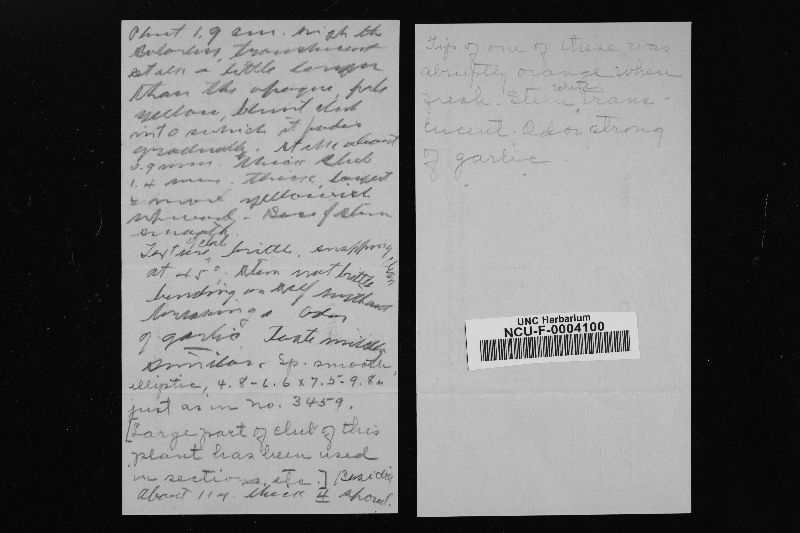 Plant 1.9 cm. high the
colorless, translucent
stalk a little longer
than the opaque, pale
yellow, blunt club
into which it fades
gradually. Stalk about
0.9 mm. thick club
1.4 mm. thick, largest
& more yellowish
upward. Base of stem
smooth.
Texture of club brittle, snapping clean
at 45°. Stem not brittle
bending on self without
breaking. Odor
of garlic. Taste mildly
similar. Sp. smooth,
elliptic, 4.8-6.6 x 7.5-9.8µ
just as in no. 3459.
[Large part of club of this
plant has been used
in sections, etc.] Basidia
about 11µ. thick 4 spored.
Tip of one of these was
abruptly orange when
fresh. Stem white, trans-
lucent. Odor strong
of garlic.
UNC Herbarium
NCU-F-0004100